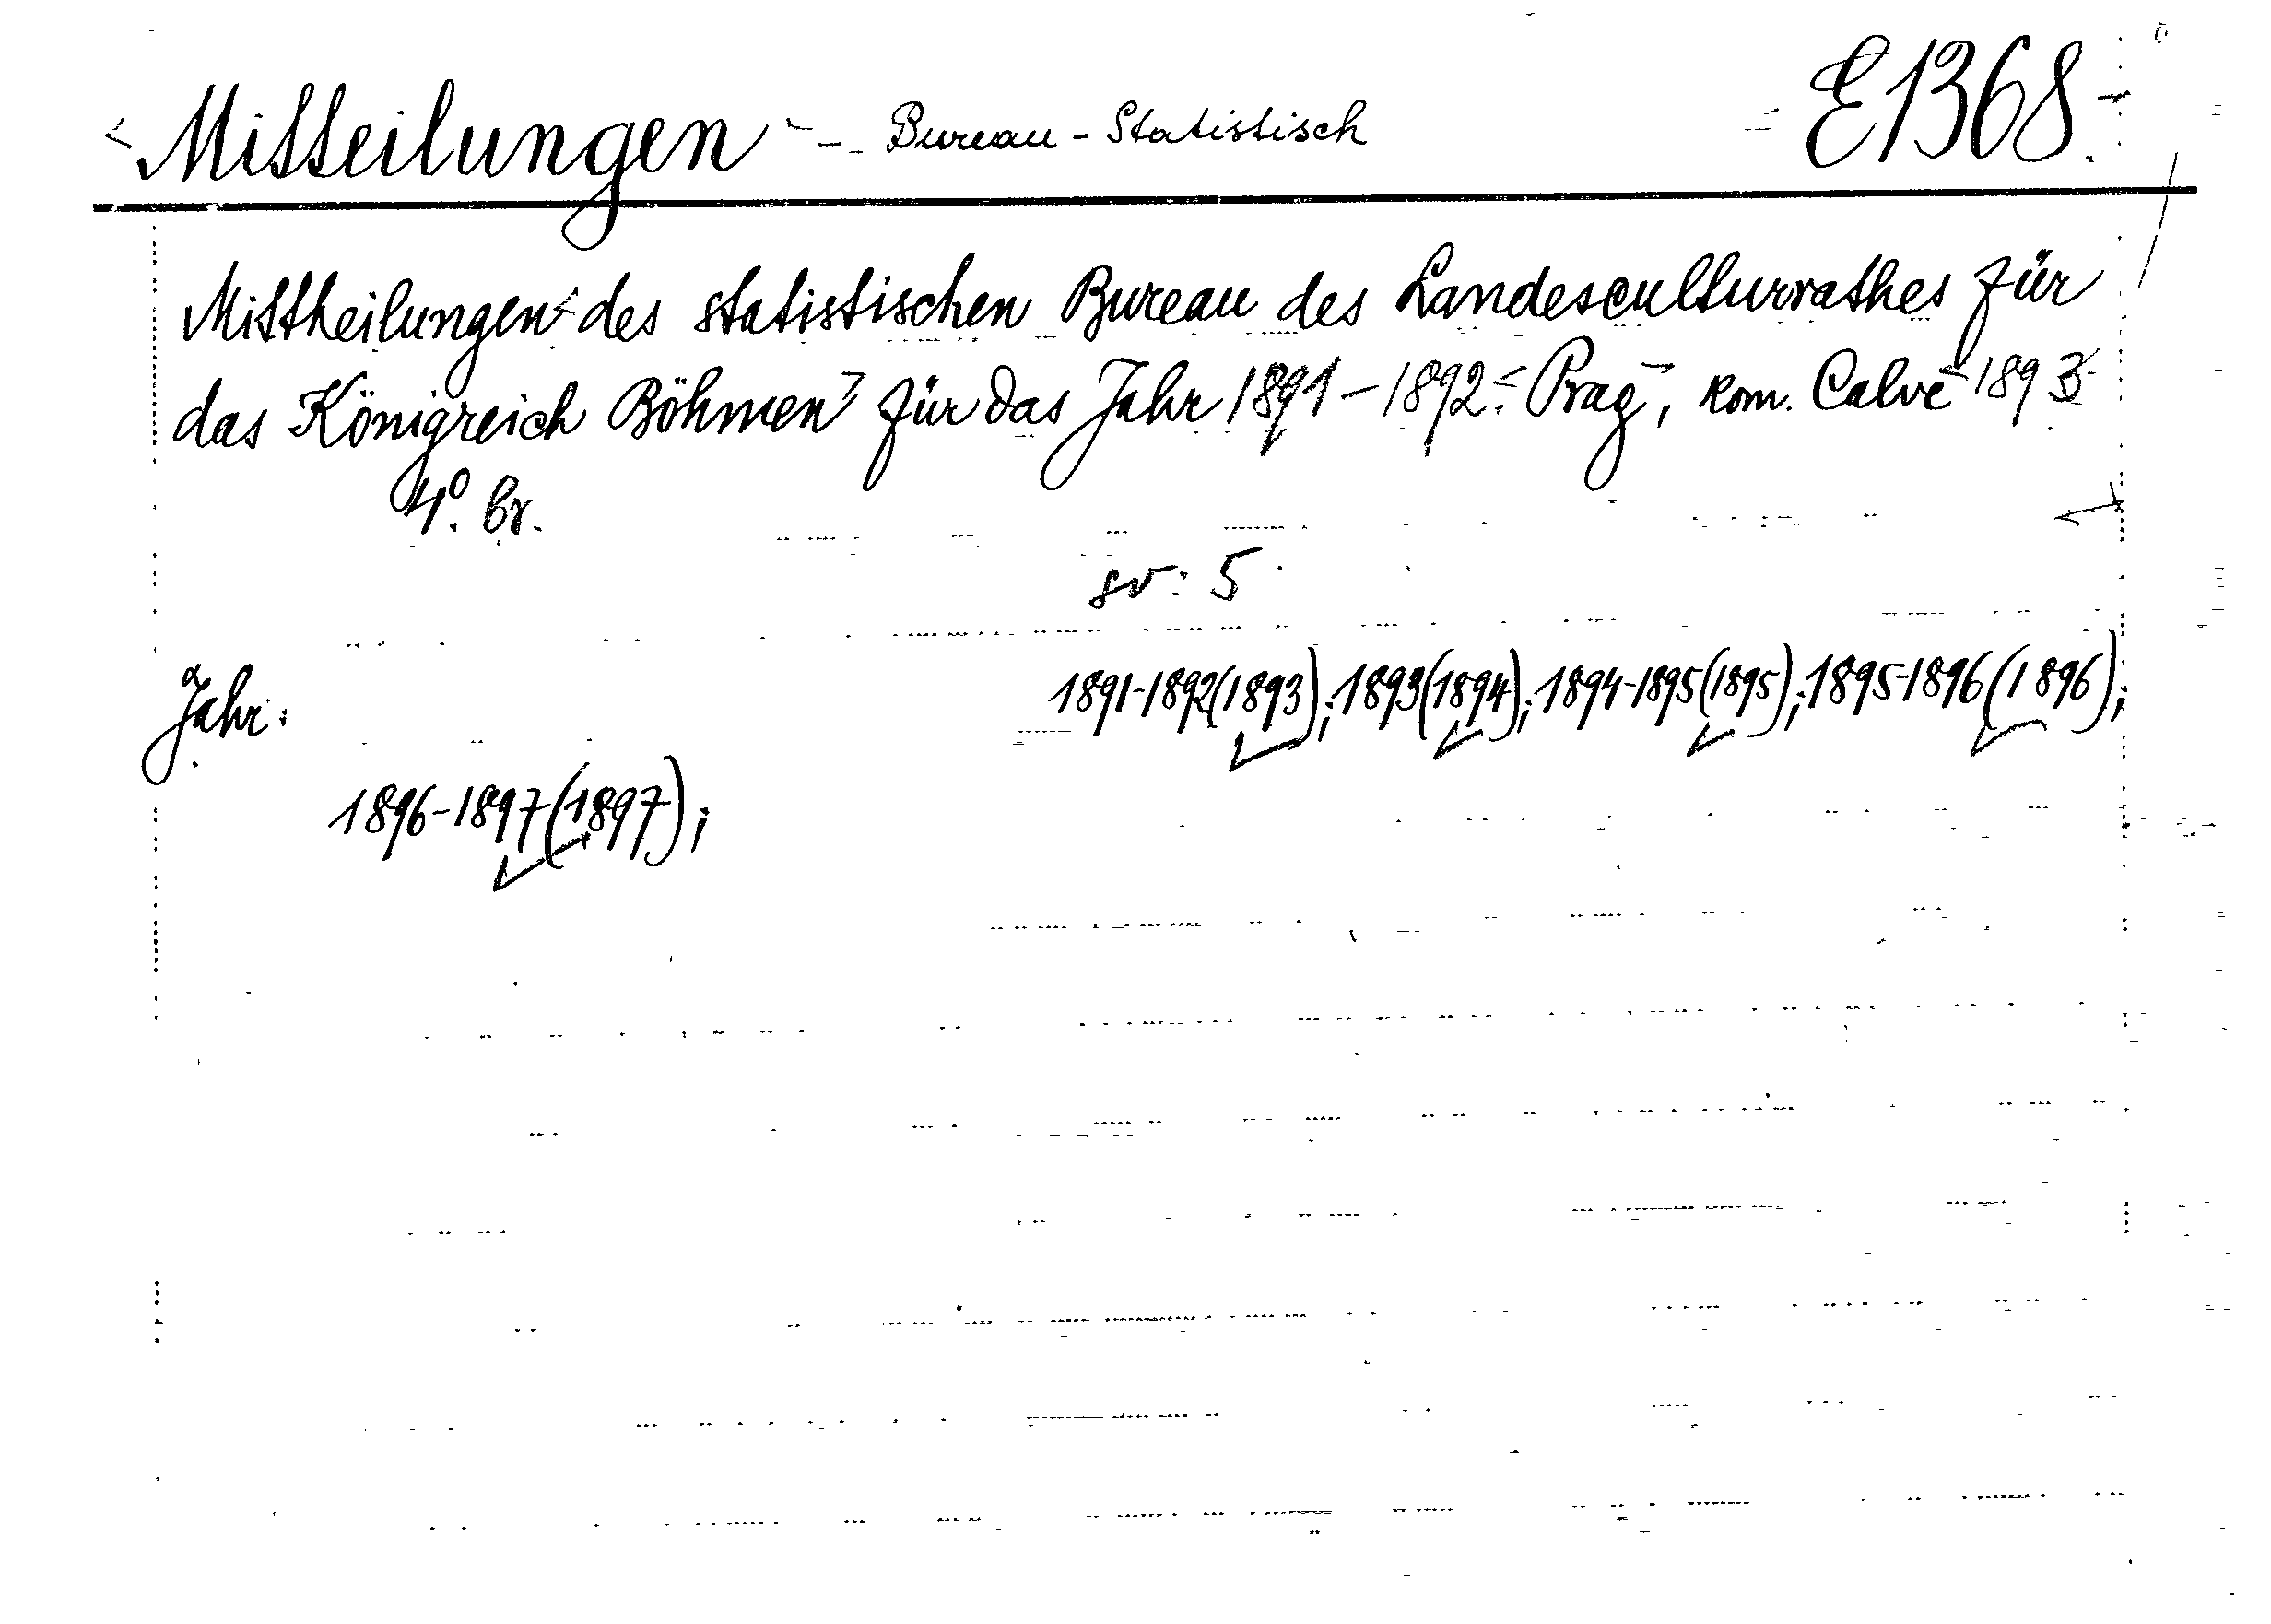 Mitteilungen -- Bureau - Statistisch E1368.
Mittheilungen des statistischen Bureau des Landesculturrathes für
das Königreich Böhmen für das Jahr 1891-1892.= Prag, kom. Calve 1893
4º. br.
sv: 5
Jahr: 1891-1892(1893); 1893(1894); 1894-1895(1895); 1895-1896(1896);
1896-1897(1897);